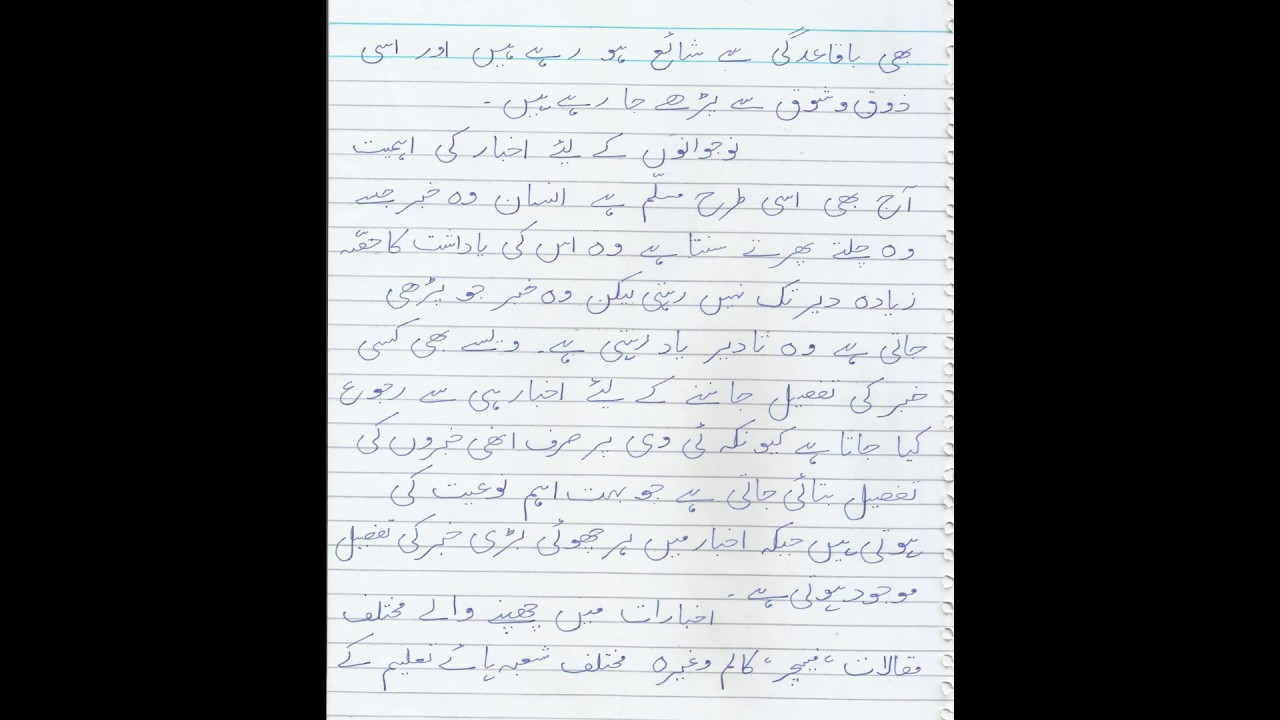 بھی باقاعدگی سے شائع ہو رہے ہیں اور اسی
ذوق و شوق سے پڑھے جا رہے ہیں۔
نوجوانوں کے لیٔے اخبار کی اہمیت
آج بھی اسی طرح مسلّم ہے انسان وہ خبر جسے
وہ چلتے پھرتے سنتا ہے وہ اس کی یاداشت کا حصّہ
زیادہ دیر تک نہیں رہتی لیکن وہ خبر جو پڑھی
جاتی ہے وہ تادیر یاد رہتی ہے۔ ویسے بھی کسی
خبر کی تفصیل جاننے کے لیٔے اخبار ہی سے رجوع
کیا جاتا ہے کیونکہ ٹی وی پر صرف انھی خبروں کی
تفصیل بتائی جاتی ہے جو بہت اہم نوعیت کی
ہوتی ہیں جبکہ اخبار میں ہر چھوٹی بڑی خبر کی تفصیل
موجود ہوتی ہے۔
اخبارات میں چھپنے والے مختلف
مقالات، فیچر، کالم وغیرہ مختلف شعبہ ہائے تعلیم کے